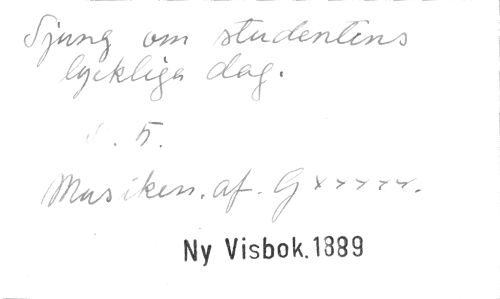 Sjung om studentens
lyckliga dag.
s. 5.
Musiken. af. G xxxxx.
Ny Visbok. 1889